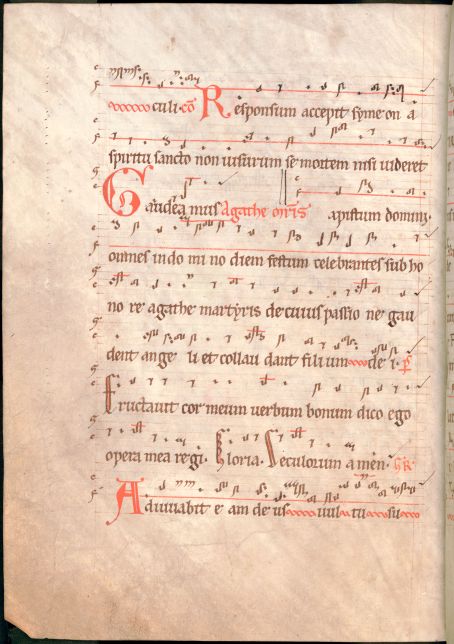 culi. co Responsum accepit symeon a
spiritu sancto non uisurum se mortem nisi uideret
Gaudea mus Agathe christum domini.
omnes in do mi no diem festum celebrantes sub ho
no re agathe martyris de cuius passio ne gau
dent ange li et collau dant filium de i.
Eructauit cor meum uerbum bonum dico ego
opera mea regi. Gloria. Seculorum amen. GR
Adiuuabit e am de us uul tu su o